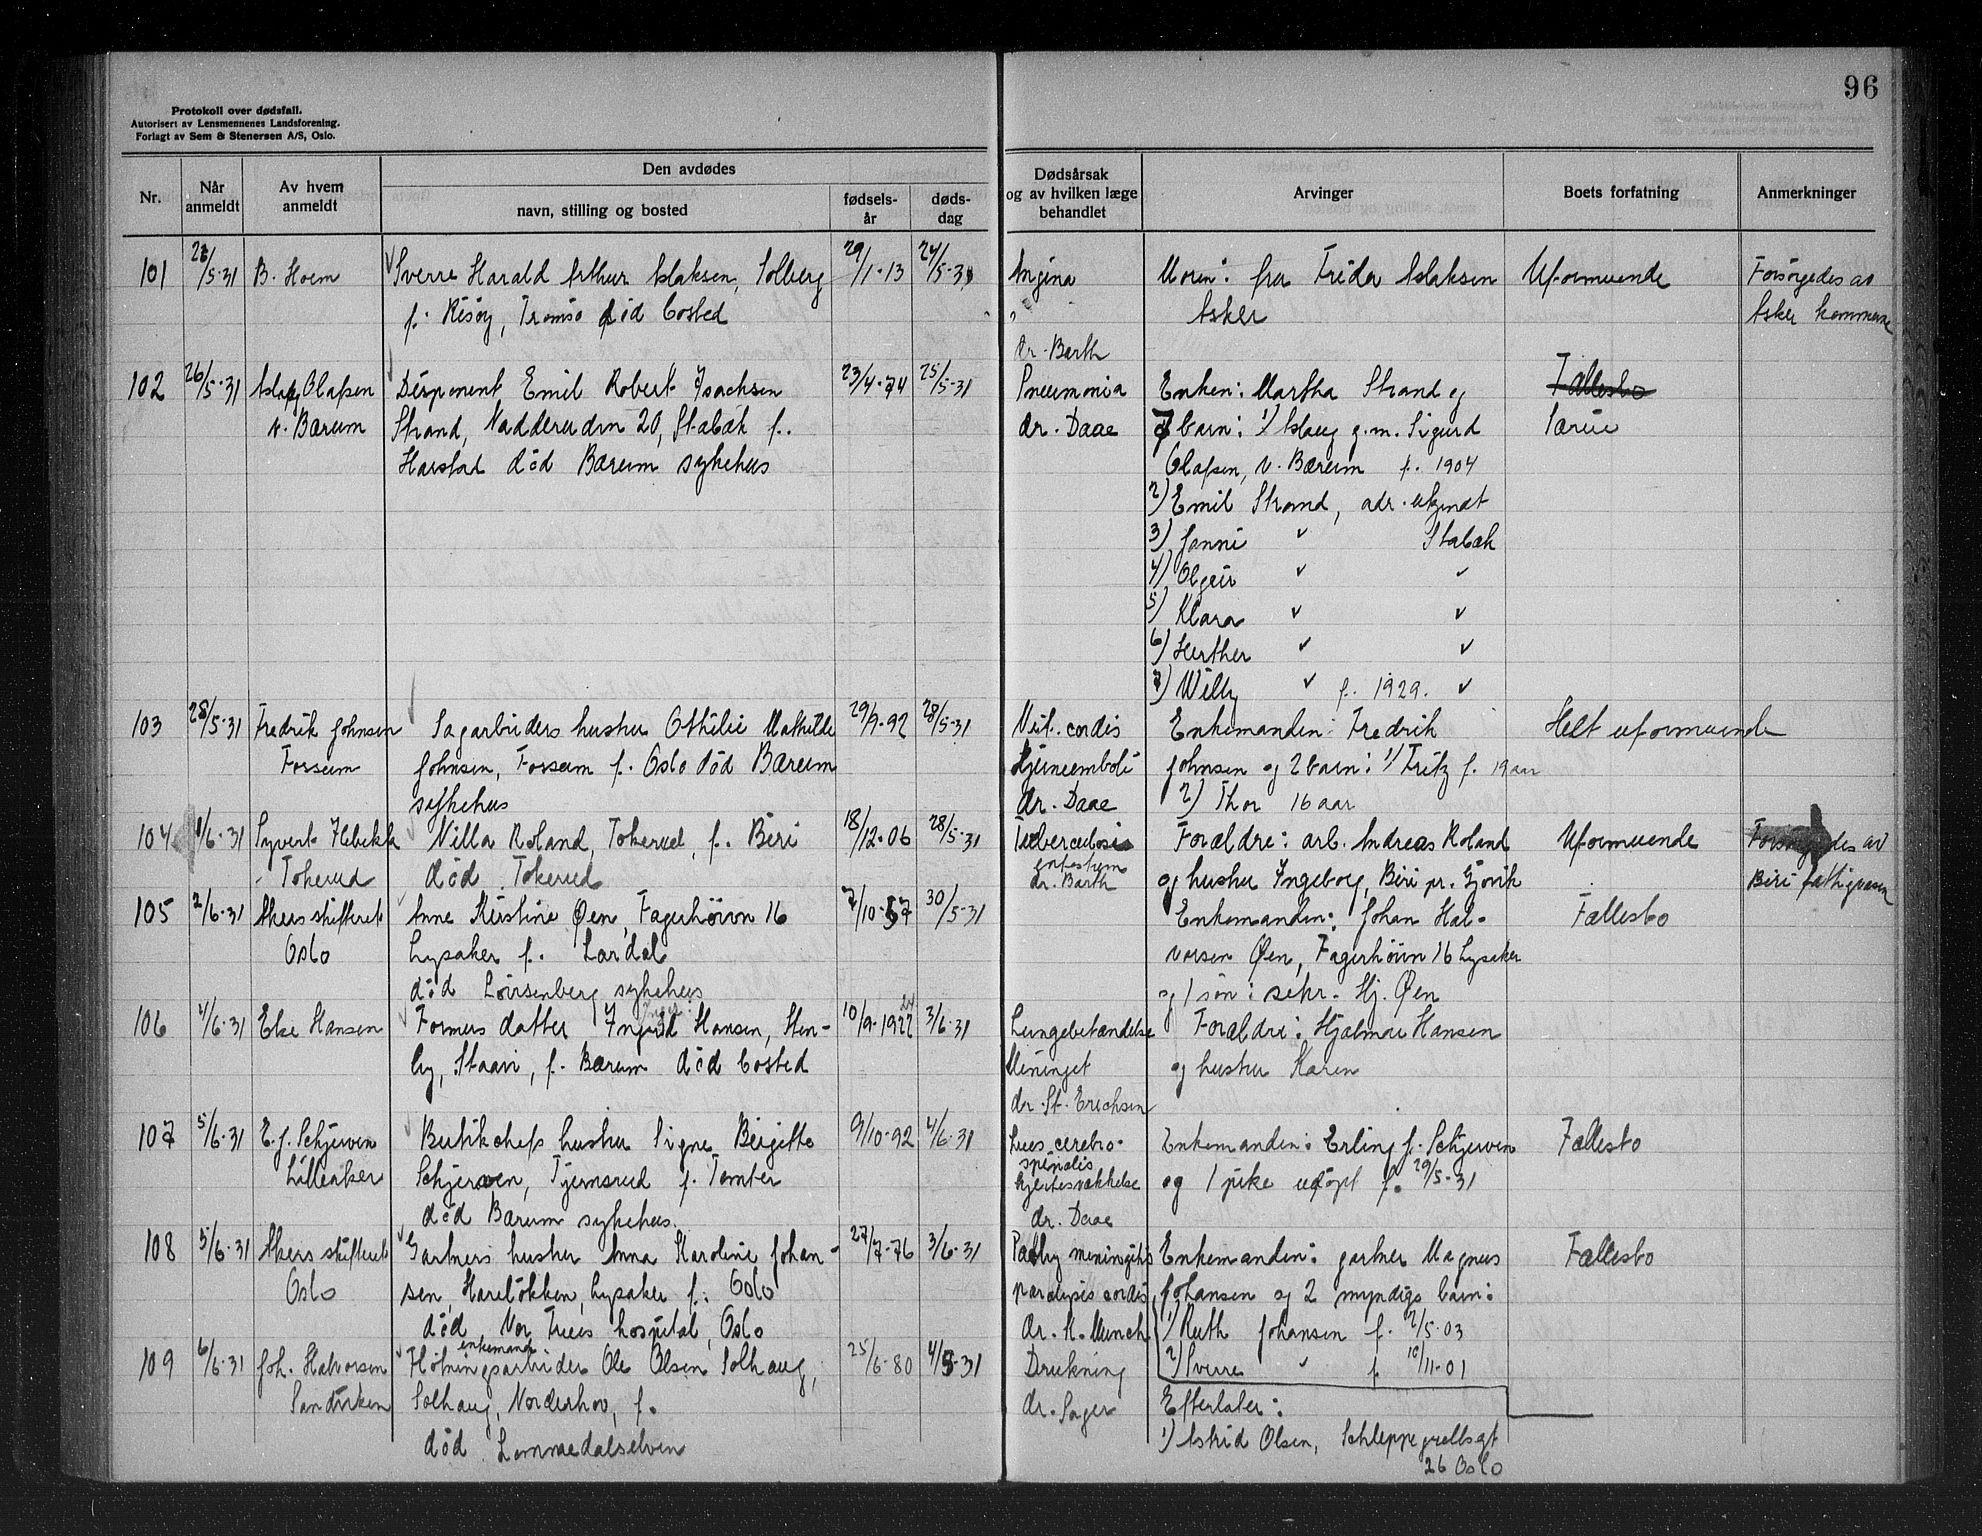 96
Protokoll over dødsfall.
Autorisert av Lensmennenes Landsforening.
Forlagt av Sem & Stenersen A/S, Oslo.
Nr. Når anmeldt Av hvem anmeldt Den avdødes navn, stilling og bosted fødsels-år døds-dag Dødsårsak og av hvilken læge behandlet Arvinger Boets forfatning Anmerkninger
101 /5-31 B. Hoem Sverre Harald Arthur Aslaksen, Solberg 29/1-13 24/5-31 Angina Moren: fru Frida Aslaksen Uformuende Forsørgedes av
f. Risøy, Tromsø død bosted Asker Asker kommune
dr. Barth
102 26/5-31 Aslaug Olafsen Disponent Emil Robert Isachsen 23/4-74 25/5-31 Pneumonia Enken: Martha Strand og Fællesbo
v. Bærum Strand, Nadderudvn 20, Stabæk f. dr. Daae 7 barn: 1) Aslaug g.m. Sigurd Særeie
Harstad død Bærum sykehus Olafsen, v. Bærum f. 1904
2) Emil Strand, adr. ukjendt
3) Jenni " Stabæk
4) Olgeir " "
5) Klara " "
6) Herther " "
7) Willy " f. 1929. "
103 28/5-31 Fredrik Johnsen Sagarbeiders hustru Othilie Mathilde 29/9-92 28/5-31 Vit. cordis Enkemanden: Fredrik Helt uformuende
Fossum Johnsen, Fossum f. Oslo død Bærum Hjerneemboli Johnsen og 2 barn: 1) Fritz f. 19 aar
sykehus dr. Daae 2) Thor 16 aar
104 1/6-31 Syvert Flebekk Villa Roland, Tokerud, f. Biri 18/12-06 28/5-31 Tuberculosis Forældre: arb. Andreas Roland Uformuende Forsørgedes av
Tokerud død Tokerud dr. Barth og hustru Ingeborg, Biri pr. Gjøvik Biri fattigvæsen
105 2/6-31 Akers skifteret Anne Kirstine Øen, Fagerhøivn 16 7/10-57 30/5-31 Enkemanden: Johan Hal- Fællesbo
Oslo Lysaker f. Lardal vorsen Øen, Fagerhøivn 16 Lysaker
død Lovisenberg sykehus og 1 søn: sekr. Hj. Øen
106 4/6-31 Else Hansen Formers datter Ingrid Hansen, Sten- 10/9-1922 3/6-31 Lungebetændelse Forældre: Hjalmar Hansen
by, Staavi, f. Bærum død bosted Meninget og hustru Karen
dr. St. Erichsen
107 5/6-31 E. J. Schjerven Butikchefs hustru Signe Birgitte 9/10-92 4/6-31 Lues cerebro- Enkemanden: Erling J. Schjerven Fællesbo
Lilleaker Schjerven, Tjernsrud f. Tomter spinalis hjertesvækkelse og 1 pike udøpt f. 29/5-31
død Bærum sykehus. dr. Daae
108 5/6-31 Akers skifteret Gartners hustru Anna Karoline Johan- 27/7-76 3/6-31 meningitis Enkemanden: gartner Magnus Fællesbo
Oslo sen, Hareløkken, Lysaker f. Oslo paralysis cordis Johansen og 2 myndige barn:
død Vor Frues hospital, Oslo dr. K. Munch 1) Ruth Johansen f. 2/5-03
enkemand
109 6/6-31 Joh. Halvorsen Fløtningsarbeider Ole Olsen Solhaug, 25/6-80 4/5-31 Drukning 2) Sverre " f. 10/11-01
Sandviken Solhaug, Norderhov, f. dr. Sager Efterlater:
død Lommedalselven 1) Astrid Olsen, Schleppegrellsgt
26 Oslo